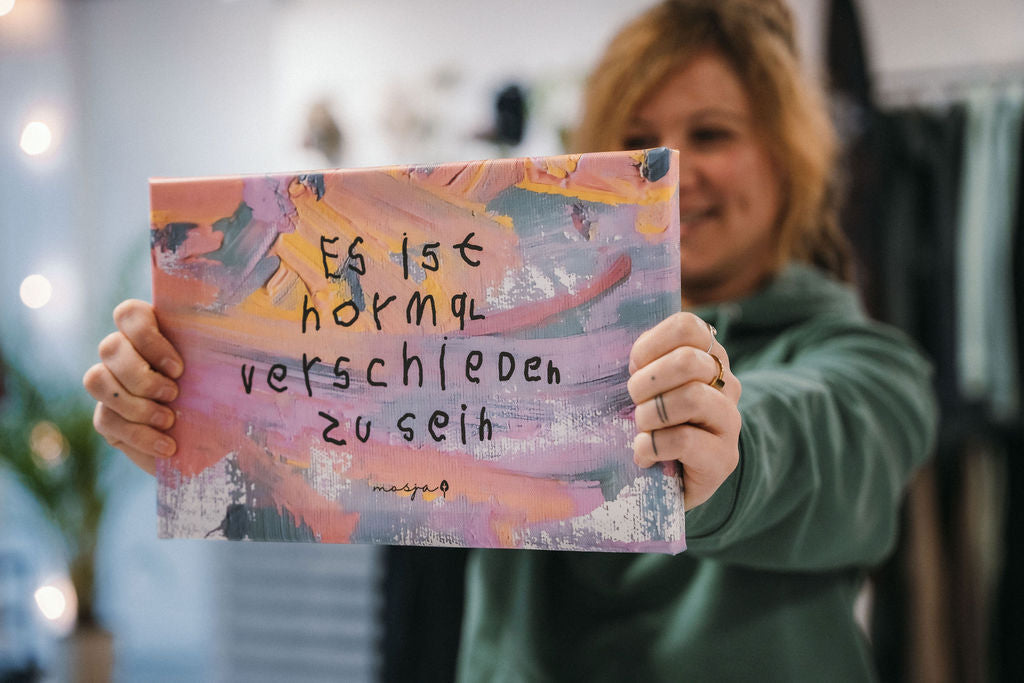 Es ist
normal
verschieden
zu sein
mosja